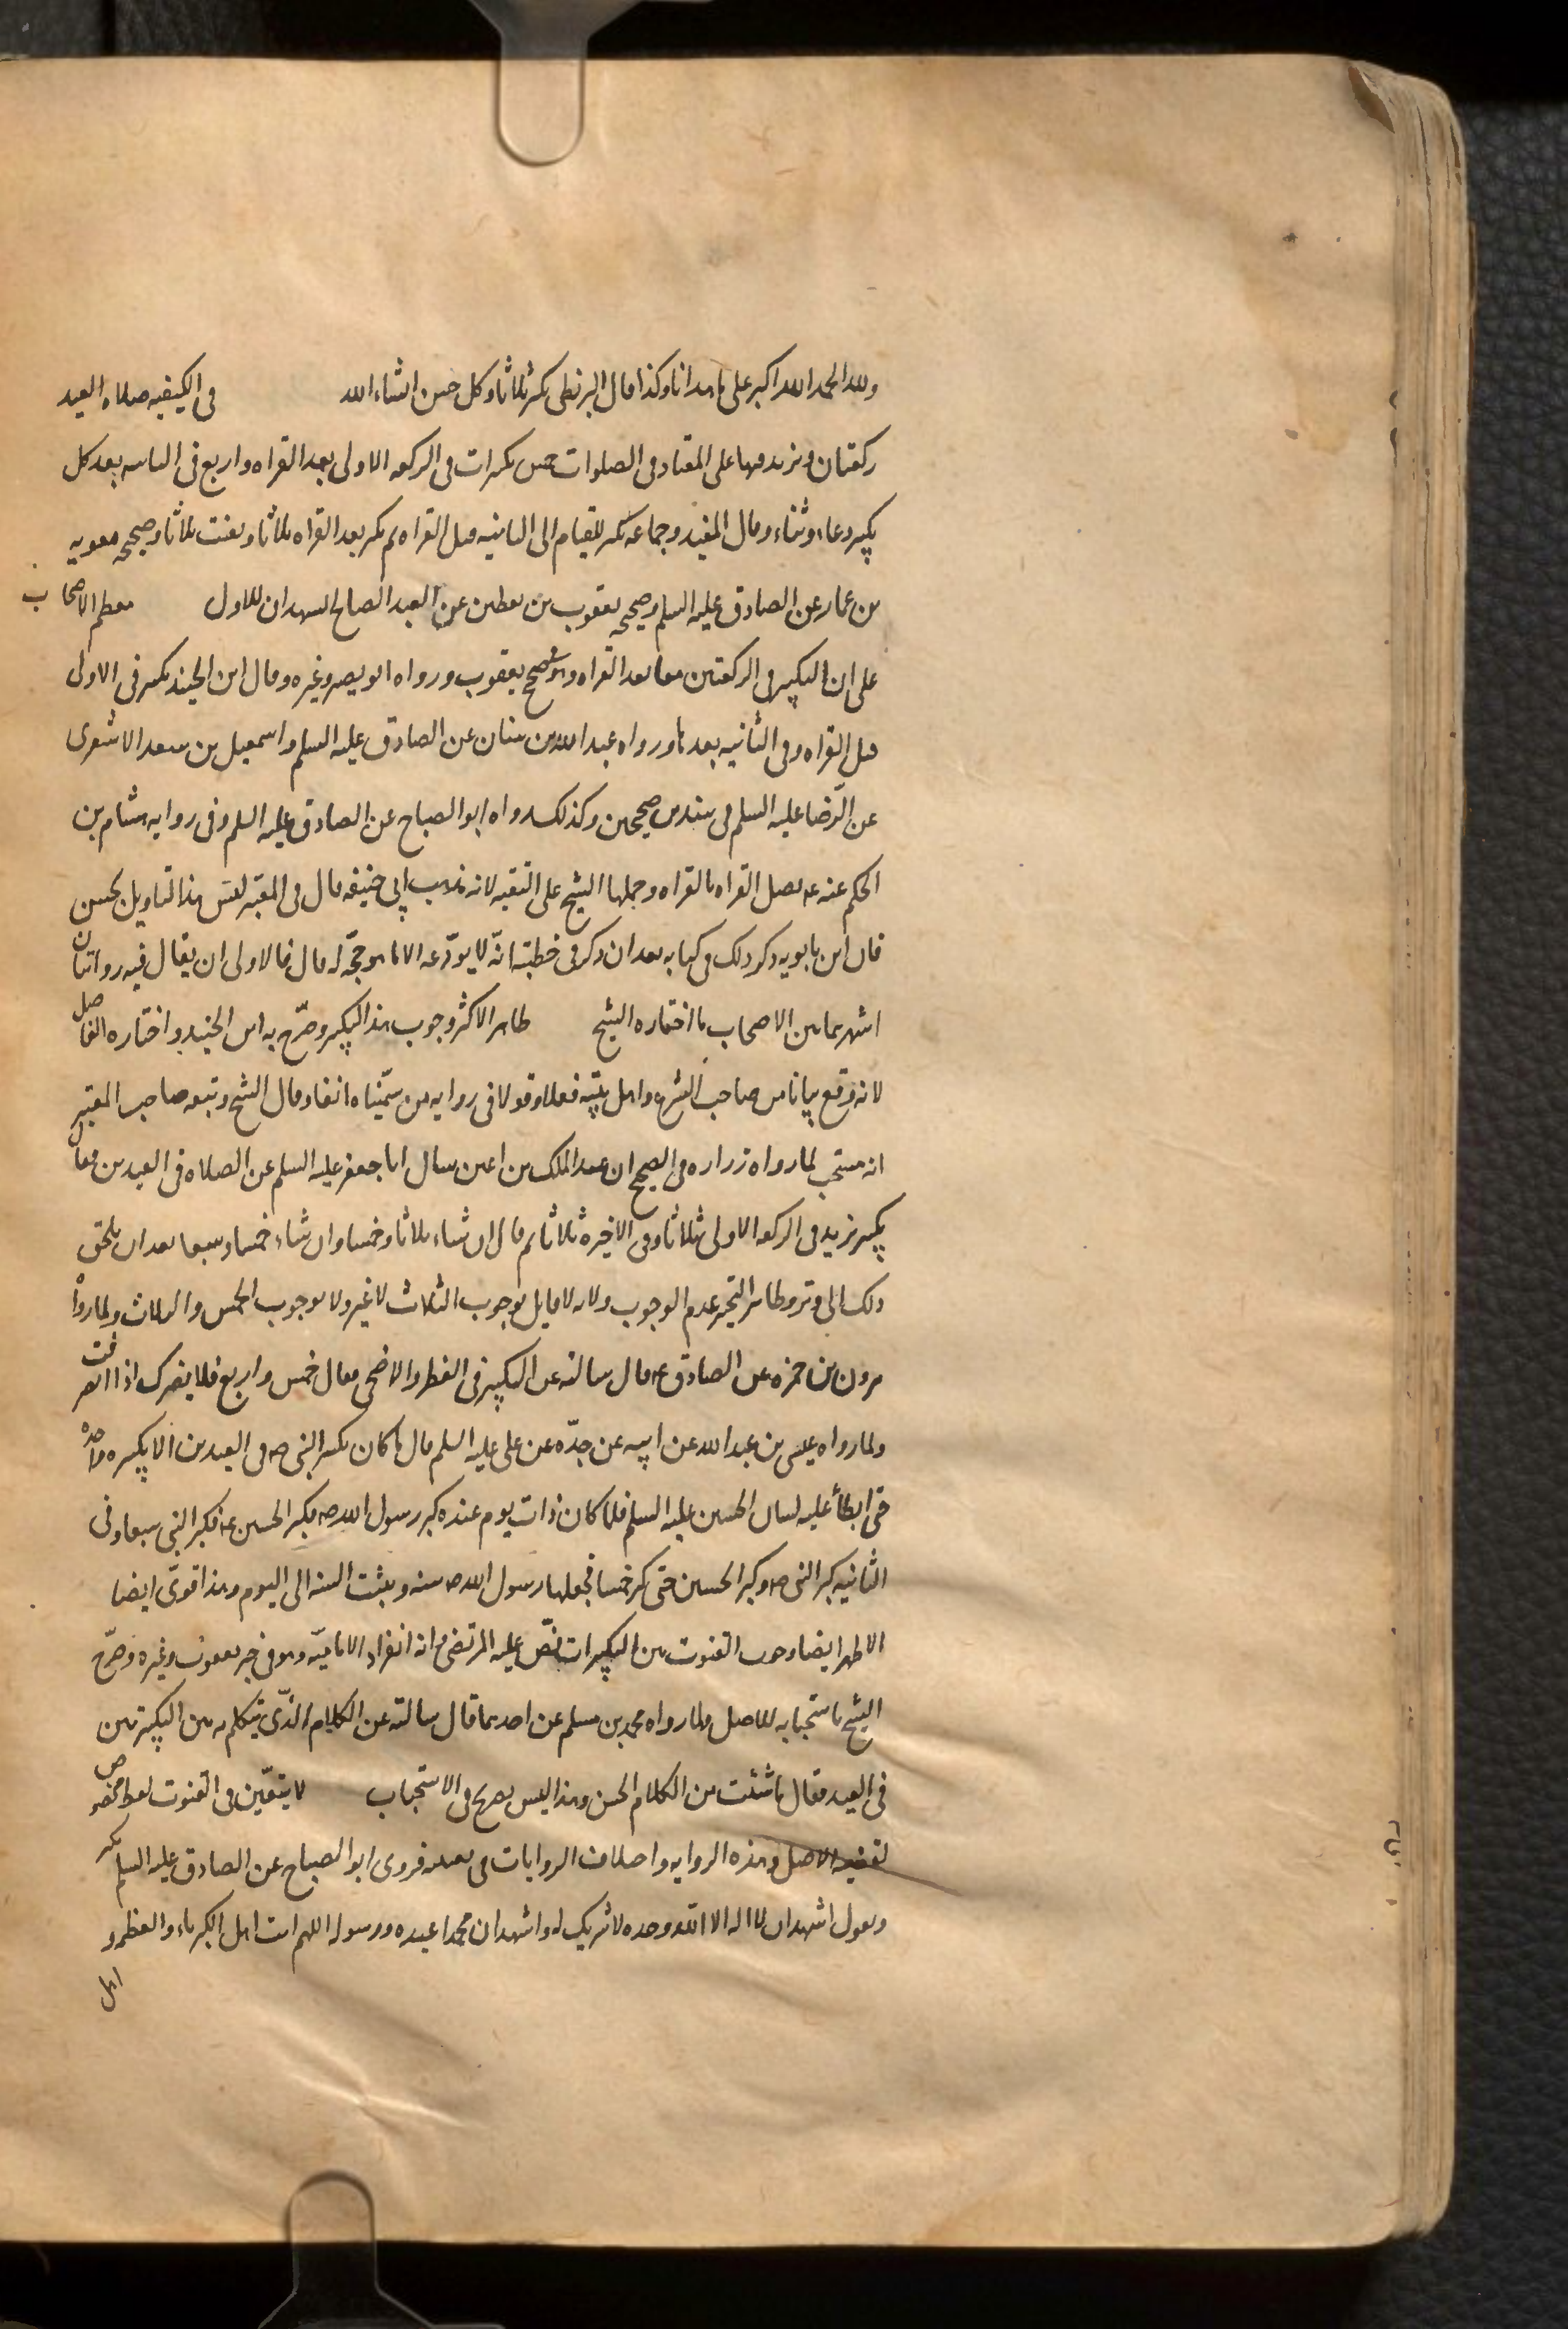 ولله الحمد الله اكبر على ما هدانا وكذا قال البزنطى يكبر ثلاثا وكل حسن انشاء الله في الكيفيه صلاه العيد
ركعتان ويزيد فيها على المعتاد في الصلوات خمس تكبيرات في الركعه الاولى بعد القراه واربع في الثانيه بعد كل
تكبير دعاء وثناء وقال المفيد وجماعه يكبر للقيام الى الثانيه قبل القراه ثم يكبر بعد القراه ثلاثا ويقنت ثلاثا وصحيحه معويه
بن عمار عن الصادق عليه السلم وصحيحه يعقوب بن يقطين عن العبد الصالح يشهدان للاول معظم الاصحاب
على ان التكبير في الركعتين معا بعد القراه وهو في صحيح يعقوب ورواه ابو بصير وغيره وقال ابن الجنيد يكبر في الاولى
قبل القراه وفي الثانيه بعدها ورواه عبد الله بن سنان عن الصادق عليه السلم واسمعيل بن سعد الاشعرى
عن الرّضا عليه السلم في سندين صحيحين وكذلك رواه ابو الصباح عن الصادق عليه السلم وفي روايه هشام بن
الحكم عنه ع يصل القراه بالقراه وحملها الشيخ على التقيه لانه مذهب ابي حنيفه قال في المعتبر ليس هذا التاويل بحسن
فان ابن بابويه ذكر ذلك في كتابه بعد ان ذكر في خطبته انّه لا يودّعه الا ما هو حجّه له قال فالاولى ان يقال فيه روايتان
اشهرهما بين الاصحاب ما اختاره الشيخ ظاهر الاكثر وجوب هذا التكبير وصرّح به ابن الجنيد واختاره الفاضل
لانه وقع بيانا من صاحب الشرع واهل بيته فعلا وقولا في روايه من سمّيناه انفا وقال الشيخ وتبعه صاحب المعتبر
انه مستحب لما رواه زراره في الصحيح ان عبد الملك بن اعين سال ابا جعفر عليه السلم عن الصلاه في العيدين فقال
يكبر يزيد في الركعه الاولى ثلاثا وفي الاخيره ثلاثا ثم قال ان شاء ثلاثا وخمسا وان شاء خمسا وسبعا بعد ان يلحق
ذلك الى وتر وظاهر التخيير عدم الوجوب ولانه لا قايل بوجوب الثلاث لا غير ولا بوجوب الخمس والثلاث ولما رواه
هرون بن حمزه عن الصادق ع قال سالته عن التكبير في الفطر والاضحى فقال خمس واربع فلا يضرك اذا انصرفت
ولما رواه عيسى بن عبد الله عن ابيه عن جدّه عن على عليه السلم قال ما كان يكبر النبى ص في العيدين الا تكبيره واحده
حتى ابطأ عليه لسان الحسين عليه السلم فلما كان ذات يوم عنده كبر رسول الله ص فكبر الحسين ع فكبر النبى سبعا وفى
الثانيه كبر النبى ص وكبر الحسين حتى كبر خمسا فجعلها رسول الله ص سنه وبثت السنه الى اليوم وهذا قوىّ ايضا
الاظهر ايضا وجوب القنوت بين التكبيرات نصّ عليه المرتضى وانه انفراد الاماميّه وهو في خبر يعقوب وغيره وصرّح
الشيخ باستحبابه للاصل ولما رواه محمد بن مسلم عن احدهما قال سالته عن الكلام الذى يتكلم به بين التكبيرتين
في العيد فقال ما شئت من الكلام الحسن وهذا ليس بصريح في الاستحباب لا يتعيّن في القنوت لفظ مخصوص
لقضيه الاصل وهذه الروايه واختلاف الروايات في تعيينه فروى ابو الصباح عن الصادق عليه السلم يكبر
ويقول اشهد ان لا اله الا الله وحده لا شريك له واشهد ان محمدا عبده ورسوله اللهم انت اهل الكبرياء والعظمه و
اهل